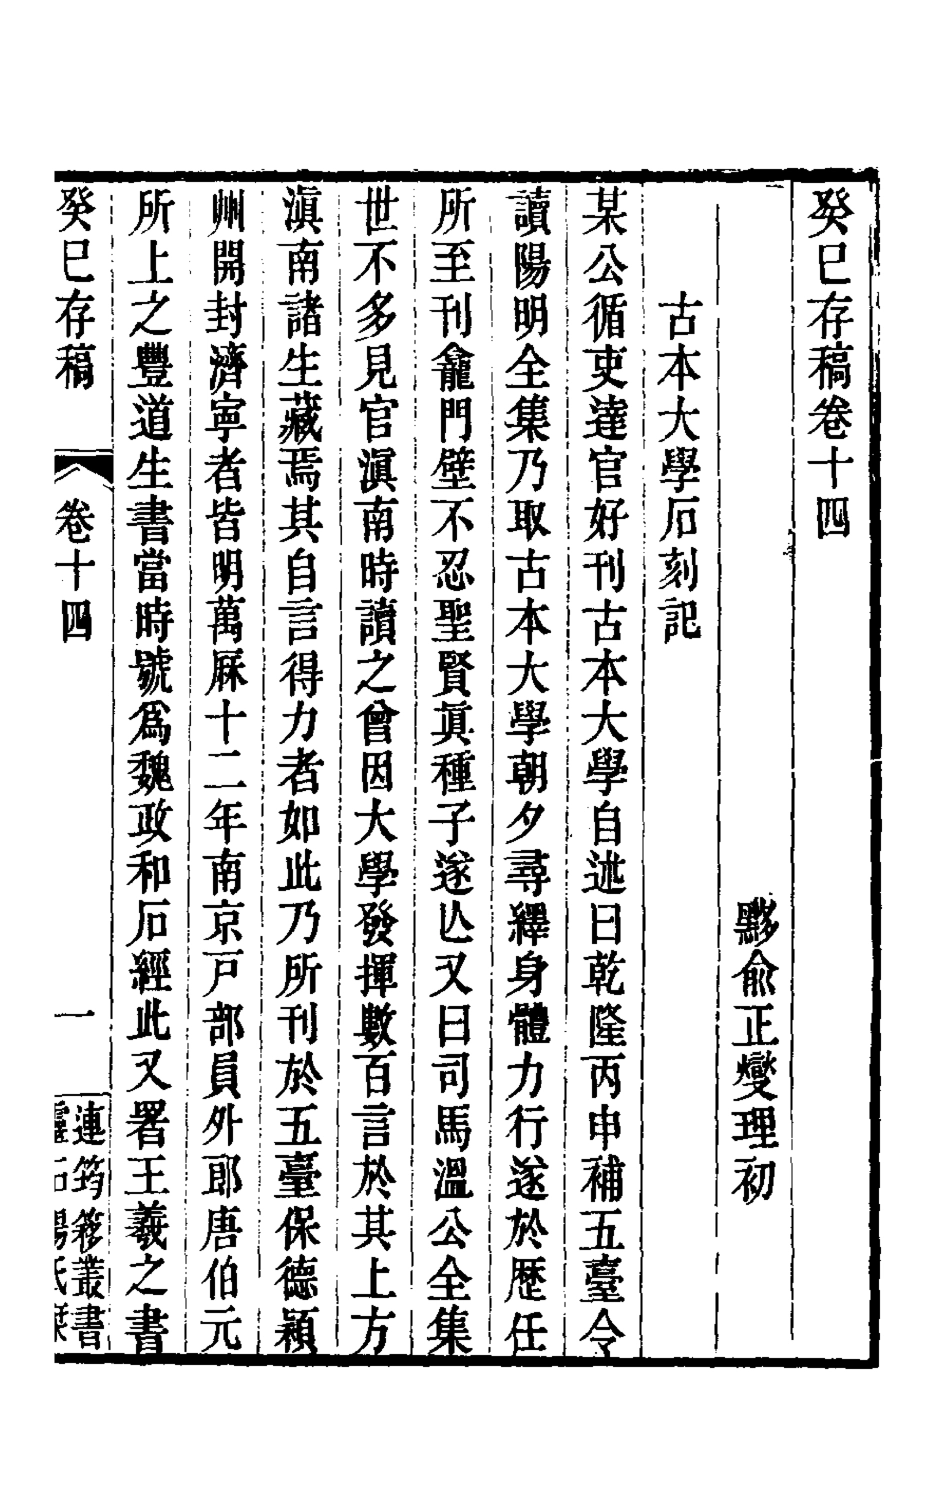 癸巳存稿卷十四
黟俞正燮理初
古本大學石刻記
某公循吏達官好刊古本大學自述曰乾隆丙申補五臺令
讀陽明全集乃取古本大學朝夕尋繹身體力行遂於歷任
所至刊龕門壁不忍聖賢眞種子遂亾又曰司馬溫公全集
世不多見官滇南時讀之曾因大學發揮數百言於其上方
滇南諸生藏焉其自言得力者如此乃所刊於五臺保德潁
州開封濟寧者皆明萬厤十二年南京戸部員外郎唐伯元
所上之豐道生書當時號爲魏政和石經此又署王羲之書
癸巳存稿
卷十四
一
連筠簃叢書
靈石楊氏栞